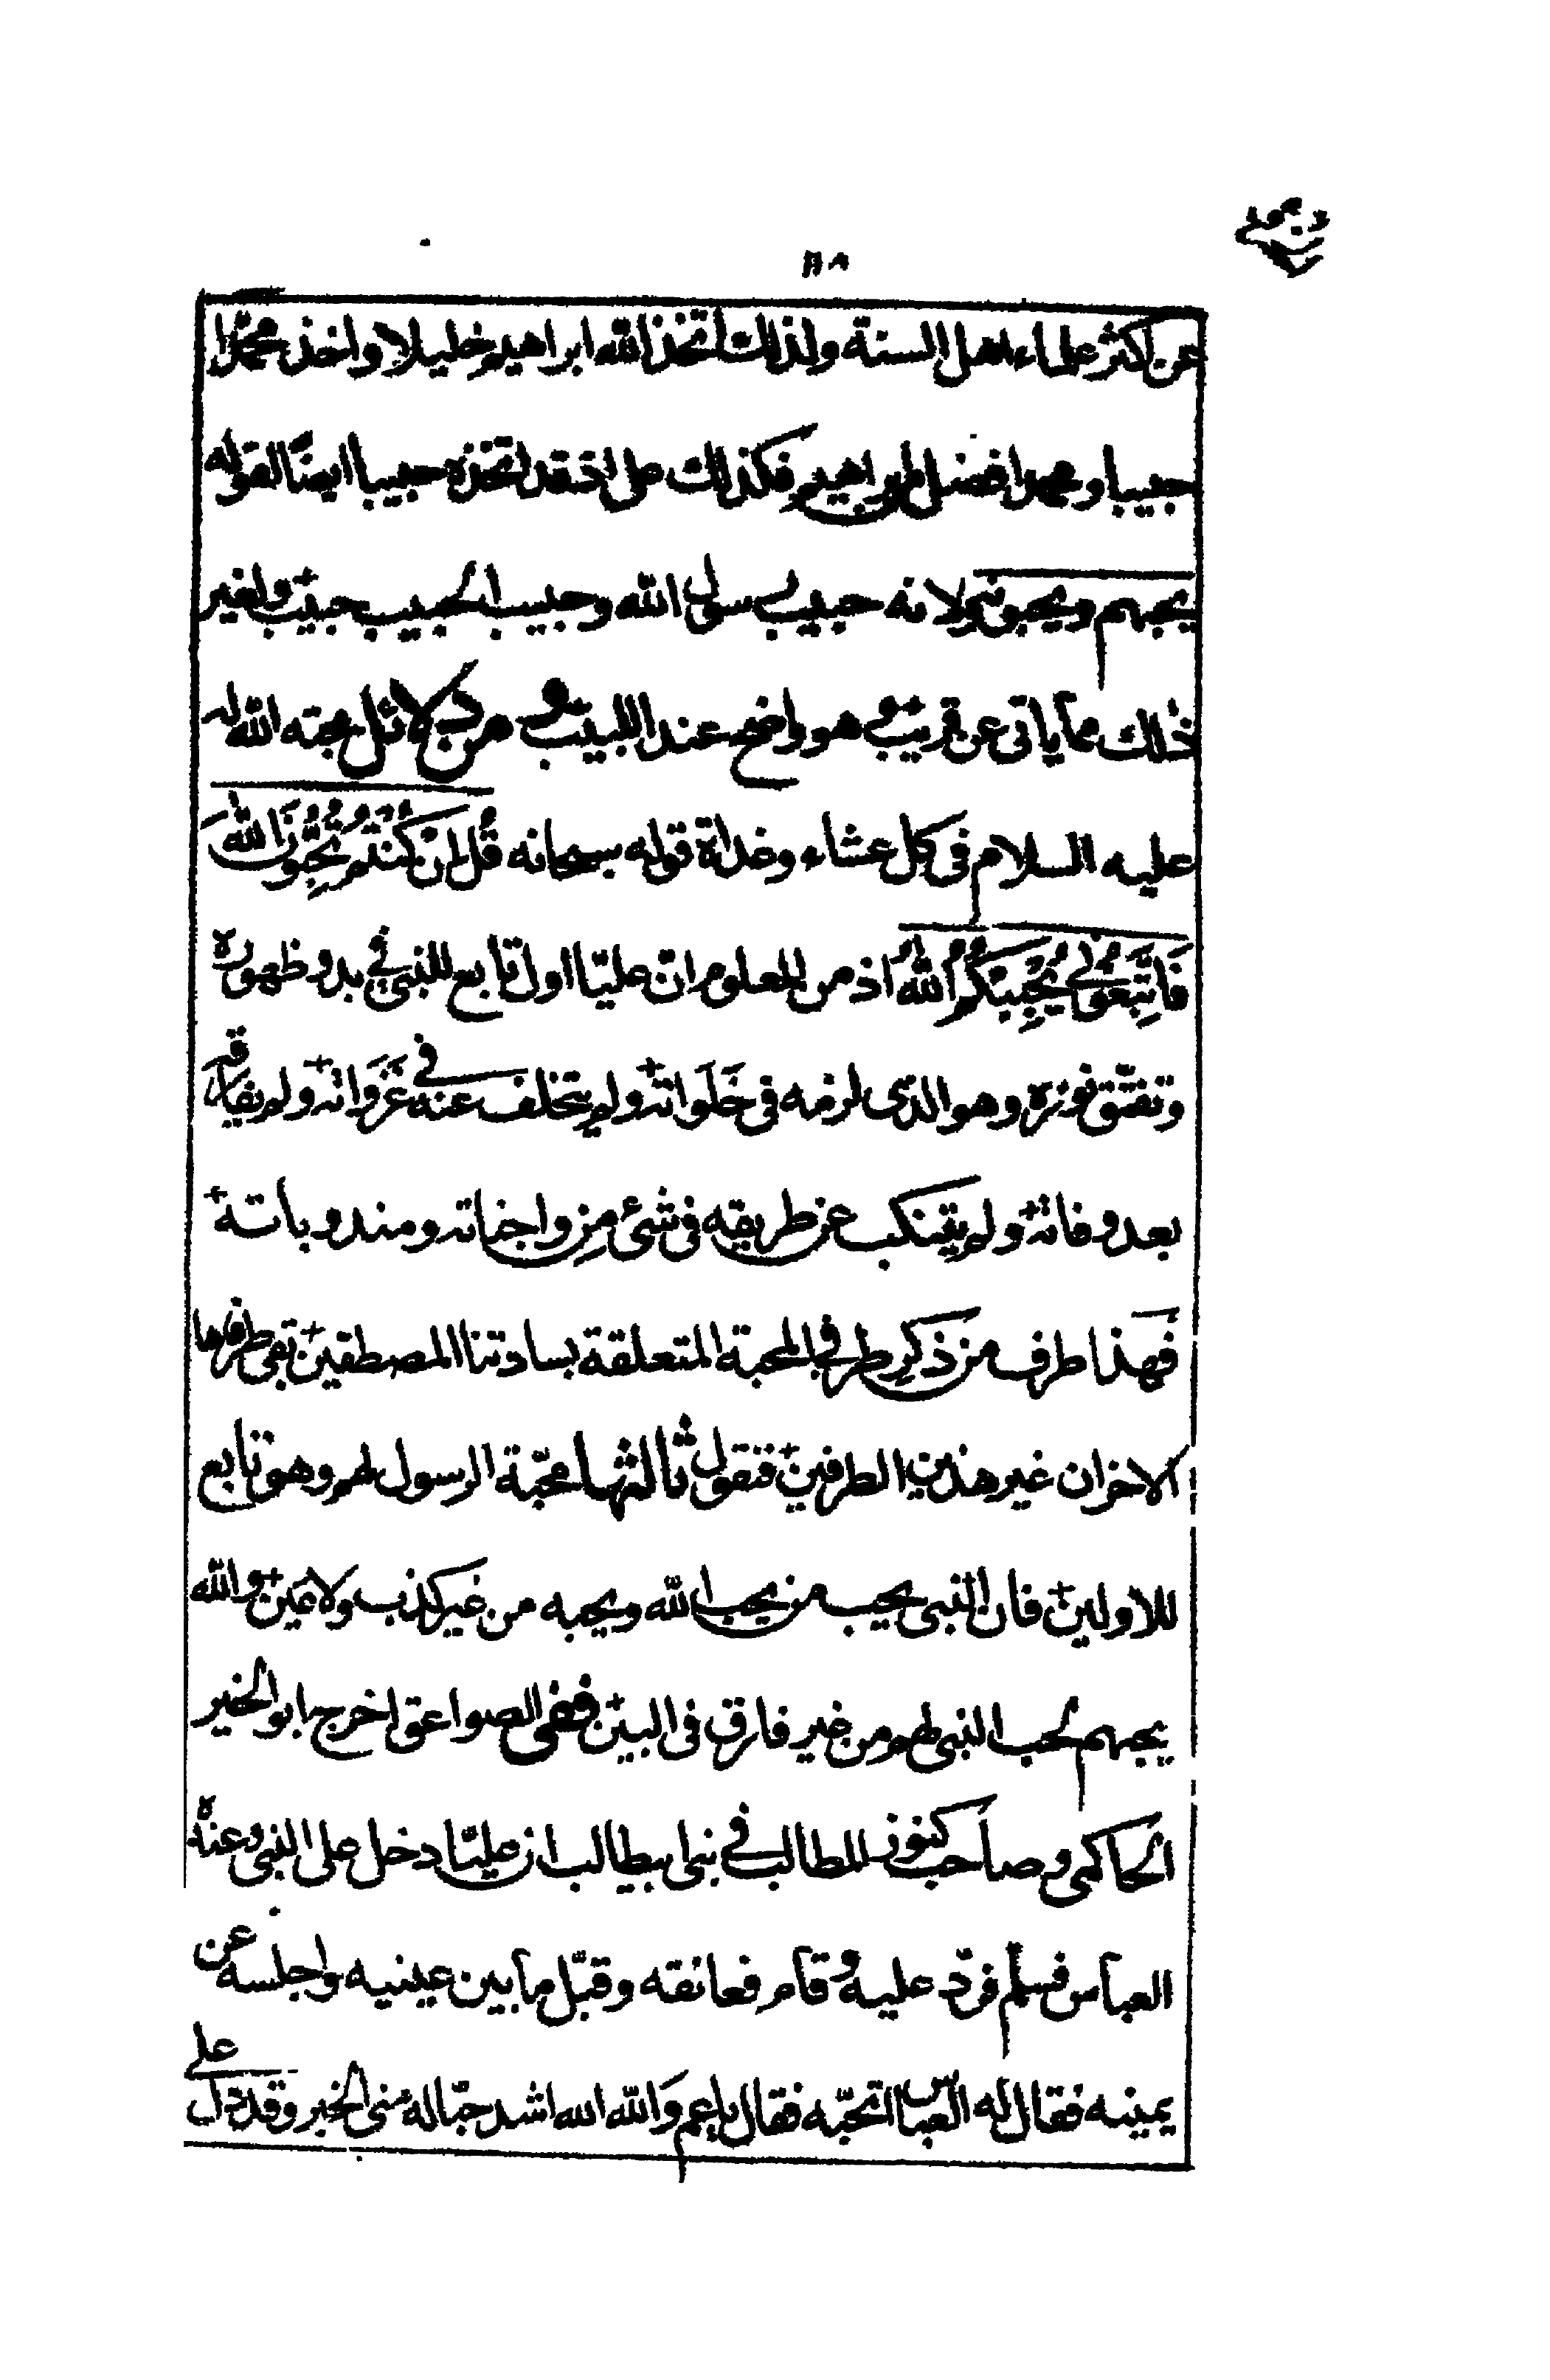 ١١٨
عن اكثر علماء اهل السنة ولذلك اتخذ الله ابراهيم خليلا واتخذ محمّدا
حبيبا ومحمد افضل من ابراهيم فكذلك على اذ قد اتخذه حبيبا ايضًا لقوله
يحبهم ويحبونه ولانه حبيب رسول الله وحبيب الحبيب حبيب ولغير
ذلك مما ياتى عن قريب وهو واضح عند اللبيب ومن دلائل محبته الله له
عليه السلام فى كل عشاء وغداة قوله سبحانه قُل اِنْ كُنْتُمْ تُحِبُّونَ اللهَ
فَاتَّبِعُوْنِي يُحْبِبْكُمُ اللهُ اذ من المعلوم انّ عليّا اول تابع للنبى فى بدو ظهوره
وتفتّق نوره وهو الذى لزمه فى خَلَواته ولم يتخلف عنه فى غَزَواته ولم يفارقه
بعد وفاته ولم يتنكب عن طريقه فى شئ من واجباته ومندوباته
فَهذا طرف من ذكر طرفى المحبة المتعلقة بسادتنا المصطفين بقى طرفاها
الاخران غير هذين الطرفين فنقول ثالثها محبّة الرسول لهم وهو تابع
للاولين فان النبى يحب من يحب الله ويحبه من غير كذب ولا مين والله
يحبهم لحب النبى لهم من غير فارق فى البين ففى الصواعق اخرج ابو الخير
الحاكمى وصاحب كنوز المطالب فى بنى ابيطالب ان عليّا دخل على النبى وعنده
العباس فسلم فردّ عليه وقام فعانقه وقبّل ما بين عينيه واجلسه عن
يمينه فقال له العباس اتحبّه فقال يا عم وَالله الله اشد حبّا له منى الخبر وقد دل
على